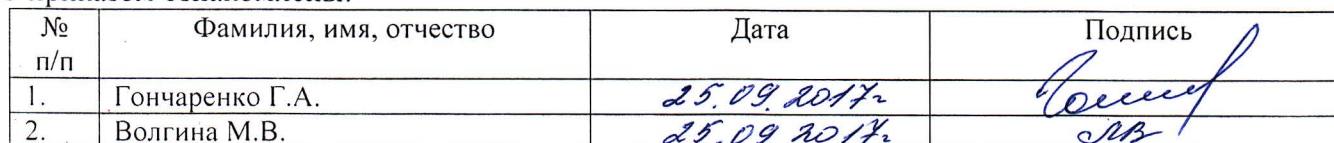 № Фамилия, имя, отчество Дата Подпись
п/п
1. Гончаренко Г.А. 25.09.2017г
2. Волгина М.В. 25.09 2017г